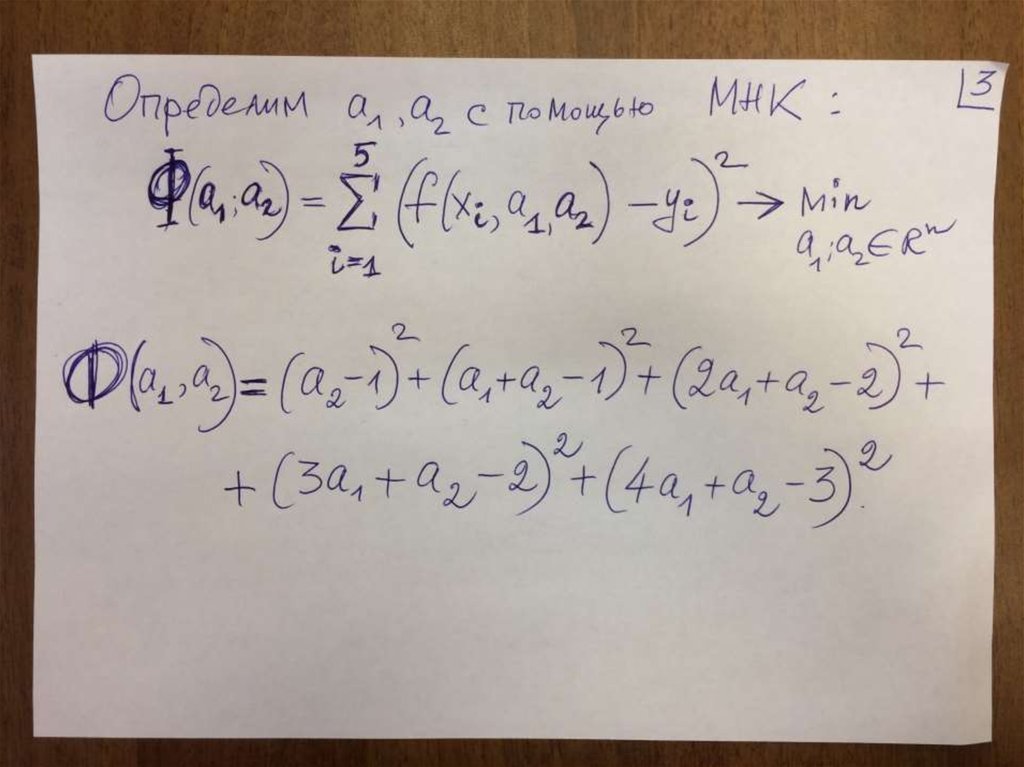 3
Определим a₁, a₂ с помощью МНК:
5
Φ(a₁; a₂) = ∑ (f(xᵢ, a₁, a₂) – yᵢ)² → min
i=1 a₁; a₂ ∈ Rⁿ
Φ(a₁, a₂) = (a₂ – 1)² + (a₁ + a₂ – 1)² + (2a₁ + a₂ – 2)² +
+ (3a₁ + a₂ – 2)² + (4a₁ + a₂ – 3)².